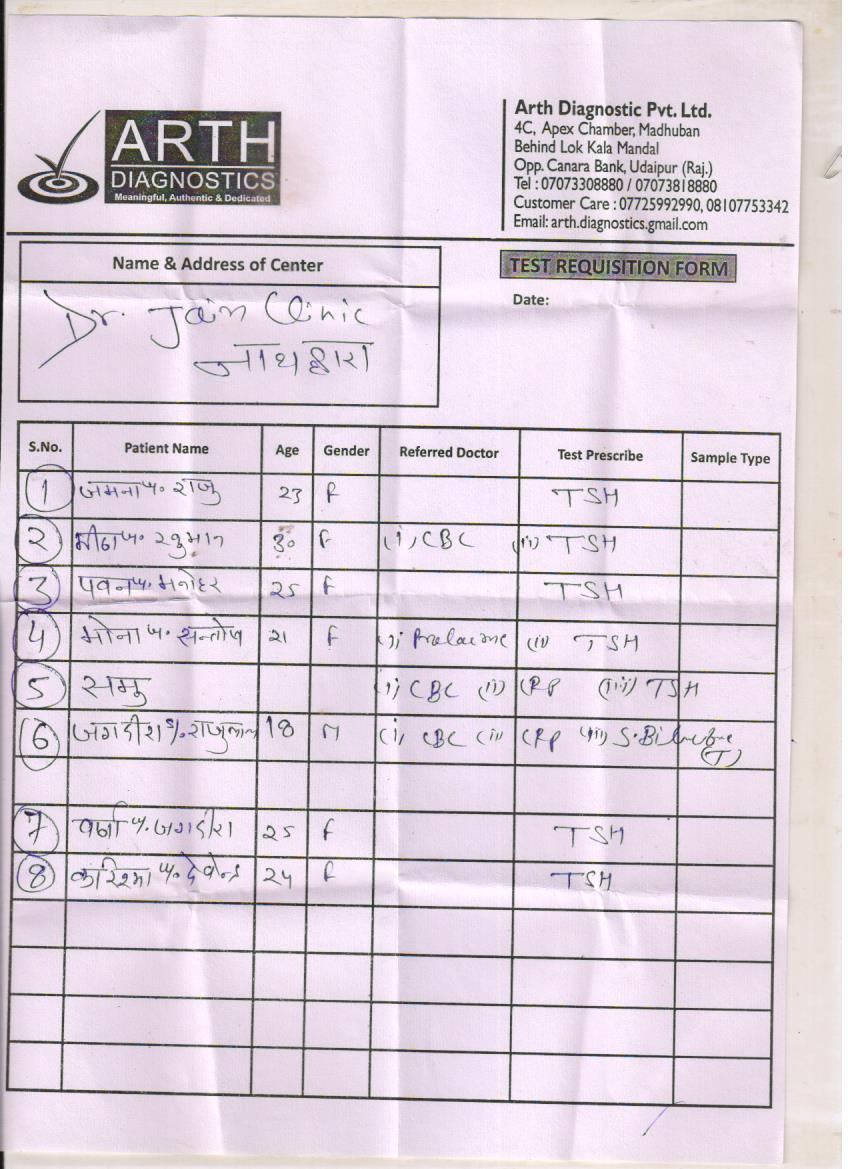 ARTH
DIAGNOSTICS
Meaningful, Authentic & Dedicated
Arth Diagnostic Pvt. Ltd.
4C, Apex Chamber, Madhuban
Behind Lok Kala Mandal
Opp. Canara Bank, Udaipur (Raj.)
Tel : 07073308880 / 07073818880
Customer Care : 07725992990, 08107753342
Email: arth.diagnostics.gmail.com
Name & Address of Center
TEST REQUISITION FORM
Date:
Dr. Jain Clinic
नाथद्वारा
S.No. Patient Name Age Gender Referred Doctor Test Prescribe Sample Type
1 जमना w/o राजु 23 F TSH
2 w/o 30 F (i) CBC (ii) TSH
3 पवन w/o मनोहर 25 F TSH
4 मोना w/o सन्तोष 21 F (i) (ii) TSH
5 समु (i) CBC (ii) CRP (iii) TSH
6 जगदीश s/o राजुलाल 18 M (i) CBC (ii) CRP (iii) (T)
7 w/o जगदीश 25 F TSH
8 करिश्मा w/o देवेन्द्र 24 F TSH